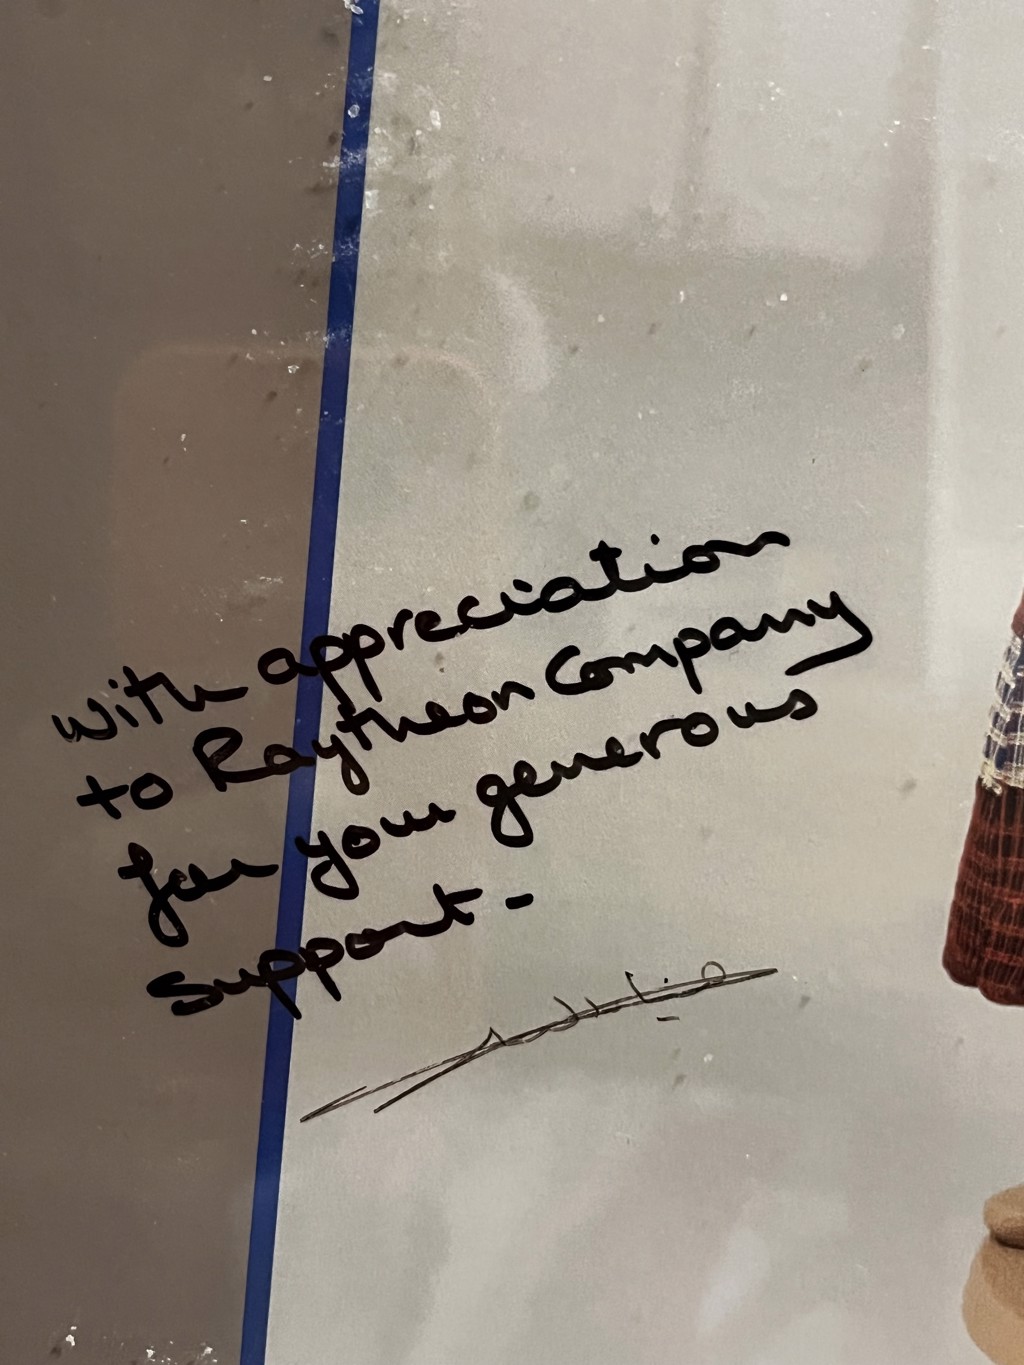 with appreciation
to Raytheon Company
for your generous
support-